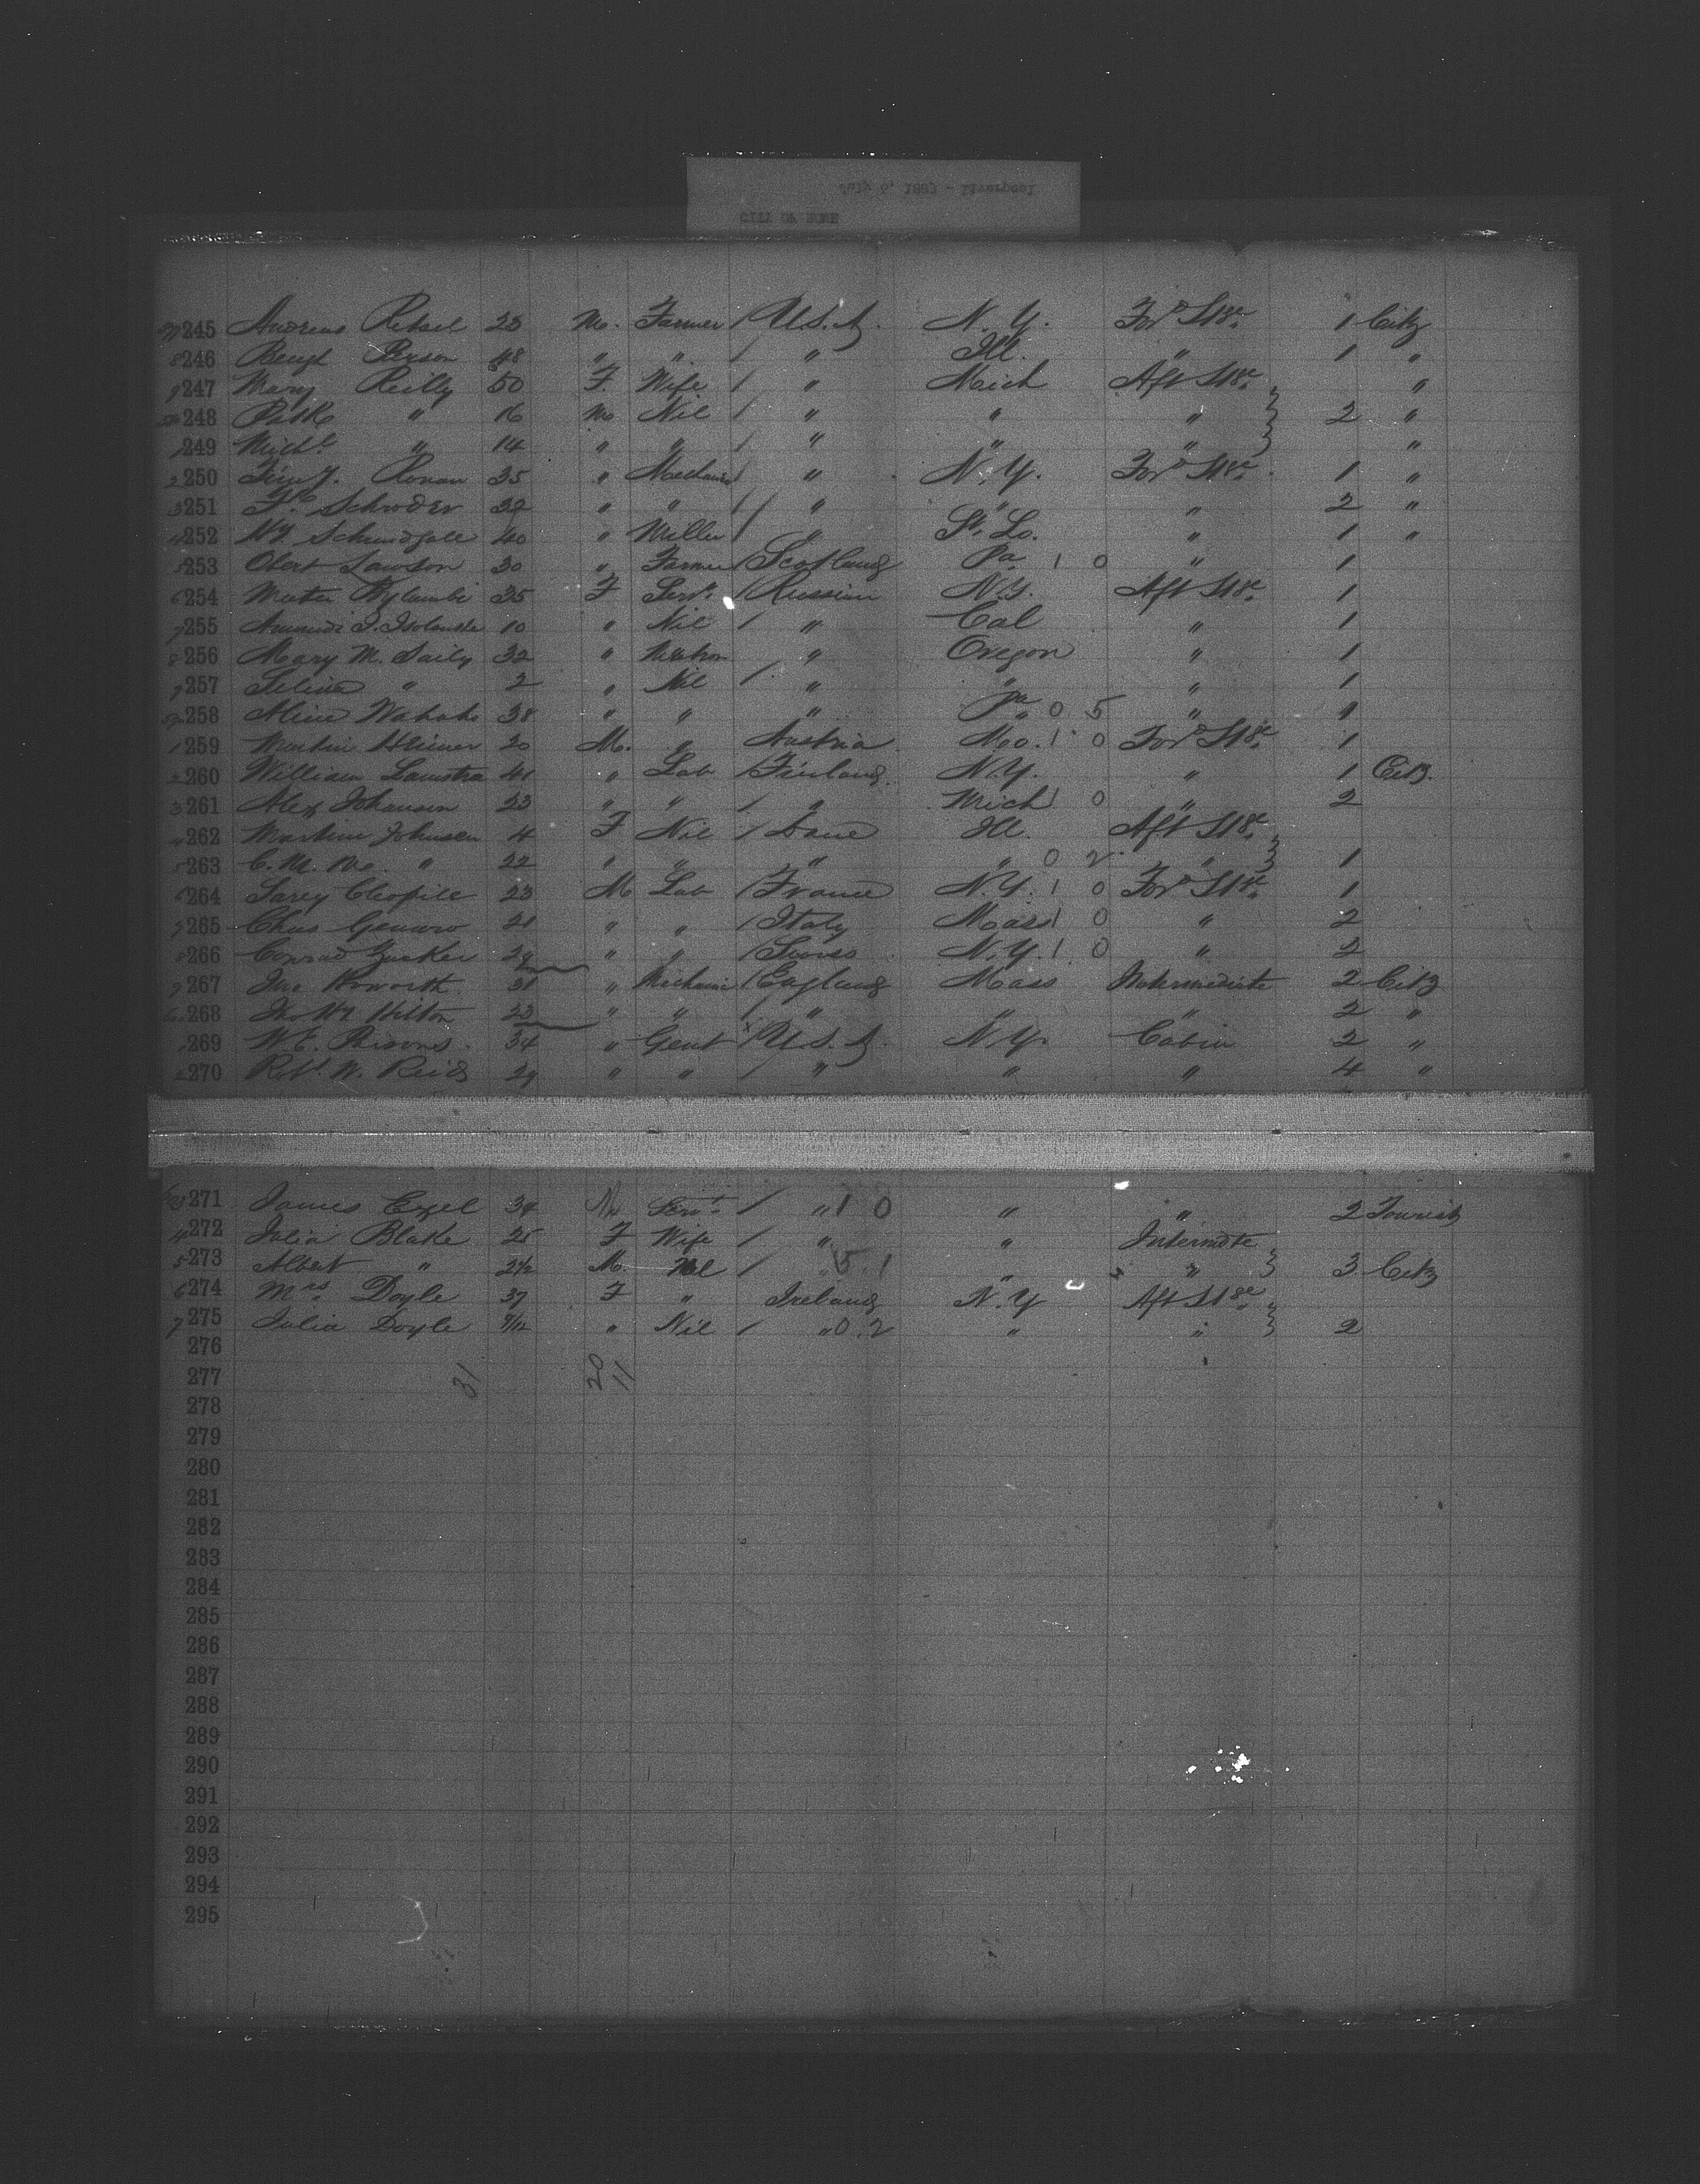 July 6, 1887 - Liverpool
CITY OF ROME
245 Andreas 23 M. Farmer / U.S.A. N.Y. For'd St'ge 1 Citz
246 Bengt Person 48 " " / " Ill. " 1 "
247 Mary Reilly 50 F. Wife / " Mich Aft St'ge "
248 Patk " 16 M Nil / " " " 2 "
249 Michl " 14 " " / " " " "
250 Ronan 35 " Mechanic / " N.Y. For'd St'ge 1 "
251 Fk Schroder 32 " " / " " " 2 "
252 Wm 40 " Miller / " St. Lo. " 1 "
253 Olert Lawson 30 " Farmer / Scotland Pa 1 0 " 1
254 35 F Servt / Russian N.Y. Aft St'ge 1
255 10 " Nil / " Cal " 1
256 Mary M. Saily 32 " Matron " Oregon " 1
257 Selina " 2 " Nil / " " " 1
258 38 " " " Pa 0 5 " 1
259 Martin 20 M. " Austria Mo. 1 0 For'd St'ge 1
260 William 41 " Lab / Finland N.Y. " 1 Citz.
261 Alex Johansen 23 " " / " Mich 1 0 " 2
262 Martine Johnsen 4 F Nil / Dane Ill. Aft St'ge
263 C.M. " 22 " " " " 0 2 " 1
264 Sarey Cleofile 23 M Lab / France N.Y. 1 0 For'd St'ge 1
265 Chas Genaro 21 " " / Italy Mass 1 0 " 2
266 Conrad 29 " " / N.Y. 1 0 " 2
267 Jno 31 " Mechanic / England Mass Intermediate 2 Citz
268 Jno Wm Hilton 23 " " / " " " 2 "
269 W.E. 34 " Gent / U.S.A. N.Y. Cabin 2 "
270 Robt. W. Reid 29 " " / " " " 4 "
271 James 34 M Servt / " 1 0 " " 2 Tourist
272 Julia Blake 25 F Wife / " " Intermdte
273 Albert " 2½ M. Nil / " 5 1 " " 3 Citz
274 Mrs Doyle 37 F " Ireland N.Y Aft St'ge
275 Julia Doyle 7/12 " Nil / " 0 2 " " 2
276
277 31 20 11
278
279
280
281
282
283
284
285
286
287
288
289
290
291
292
293
294
295